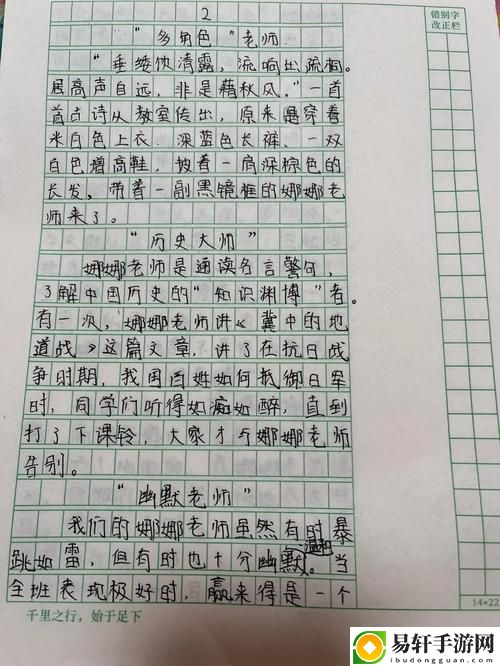 2
错别字
改正栏
“多角色”老师
“垂緌饮清露，流响出疏桐。
居高声自远，非是藉秋风。”一首
首古诗从教室传出，原来是穿着
米白色上衣、深蓝色长裤、一双
白色增高鞋，披着一肩深棕色的
长发，带着一副黑镜框的娜娜老
师来了。
“历史大师”
娜娜老师是通读名言警句，
了解中国历史的“知识渊博”者。
有一次，娜娜老师讲《冀中的地
道战》这篇文章，讲了在抗日战
争时期，我国百姓如何抵御日军
时，同学们听得如痴如醉，直到
打了下课铃，大家才与娜娜老师
告别。
“幽默老师”
我们的娜娜老师虽然有时暴
跳如雷，但有时也十分幽默温和。当
全班表现极好时，赢来得是一个
14×22
千里之行，始于足下
易轩手游网
ibudongguan.com